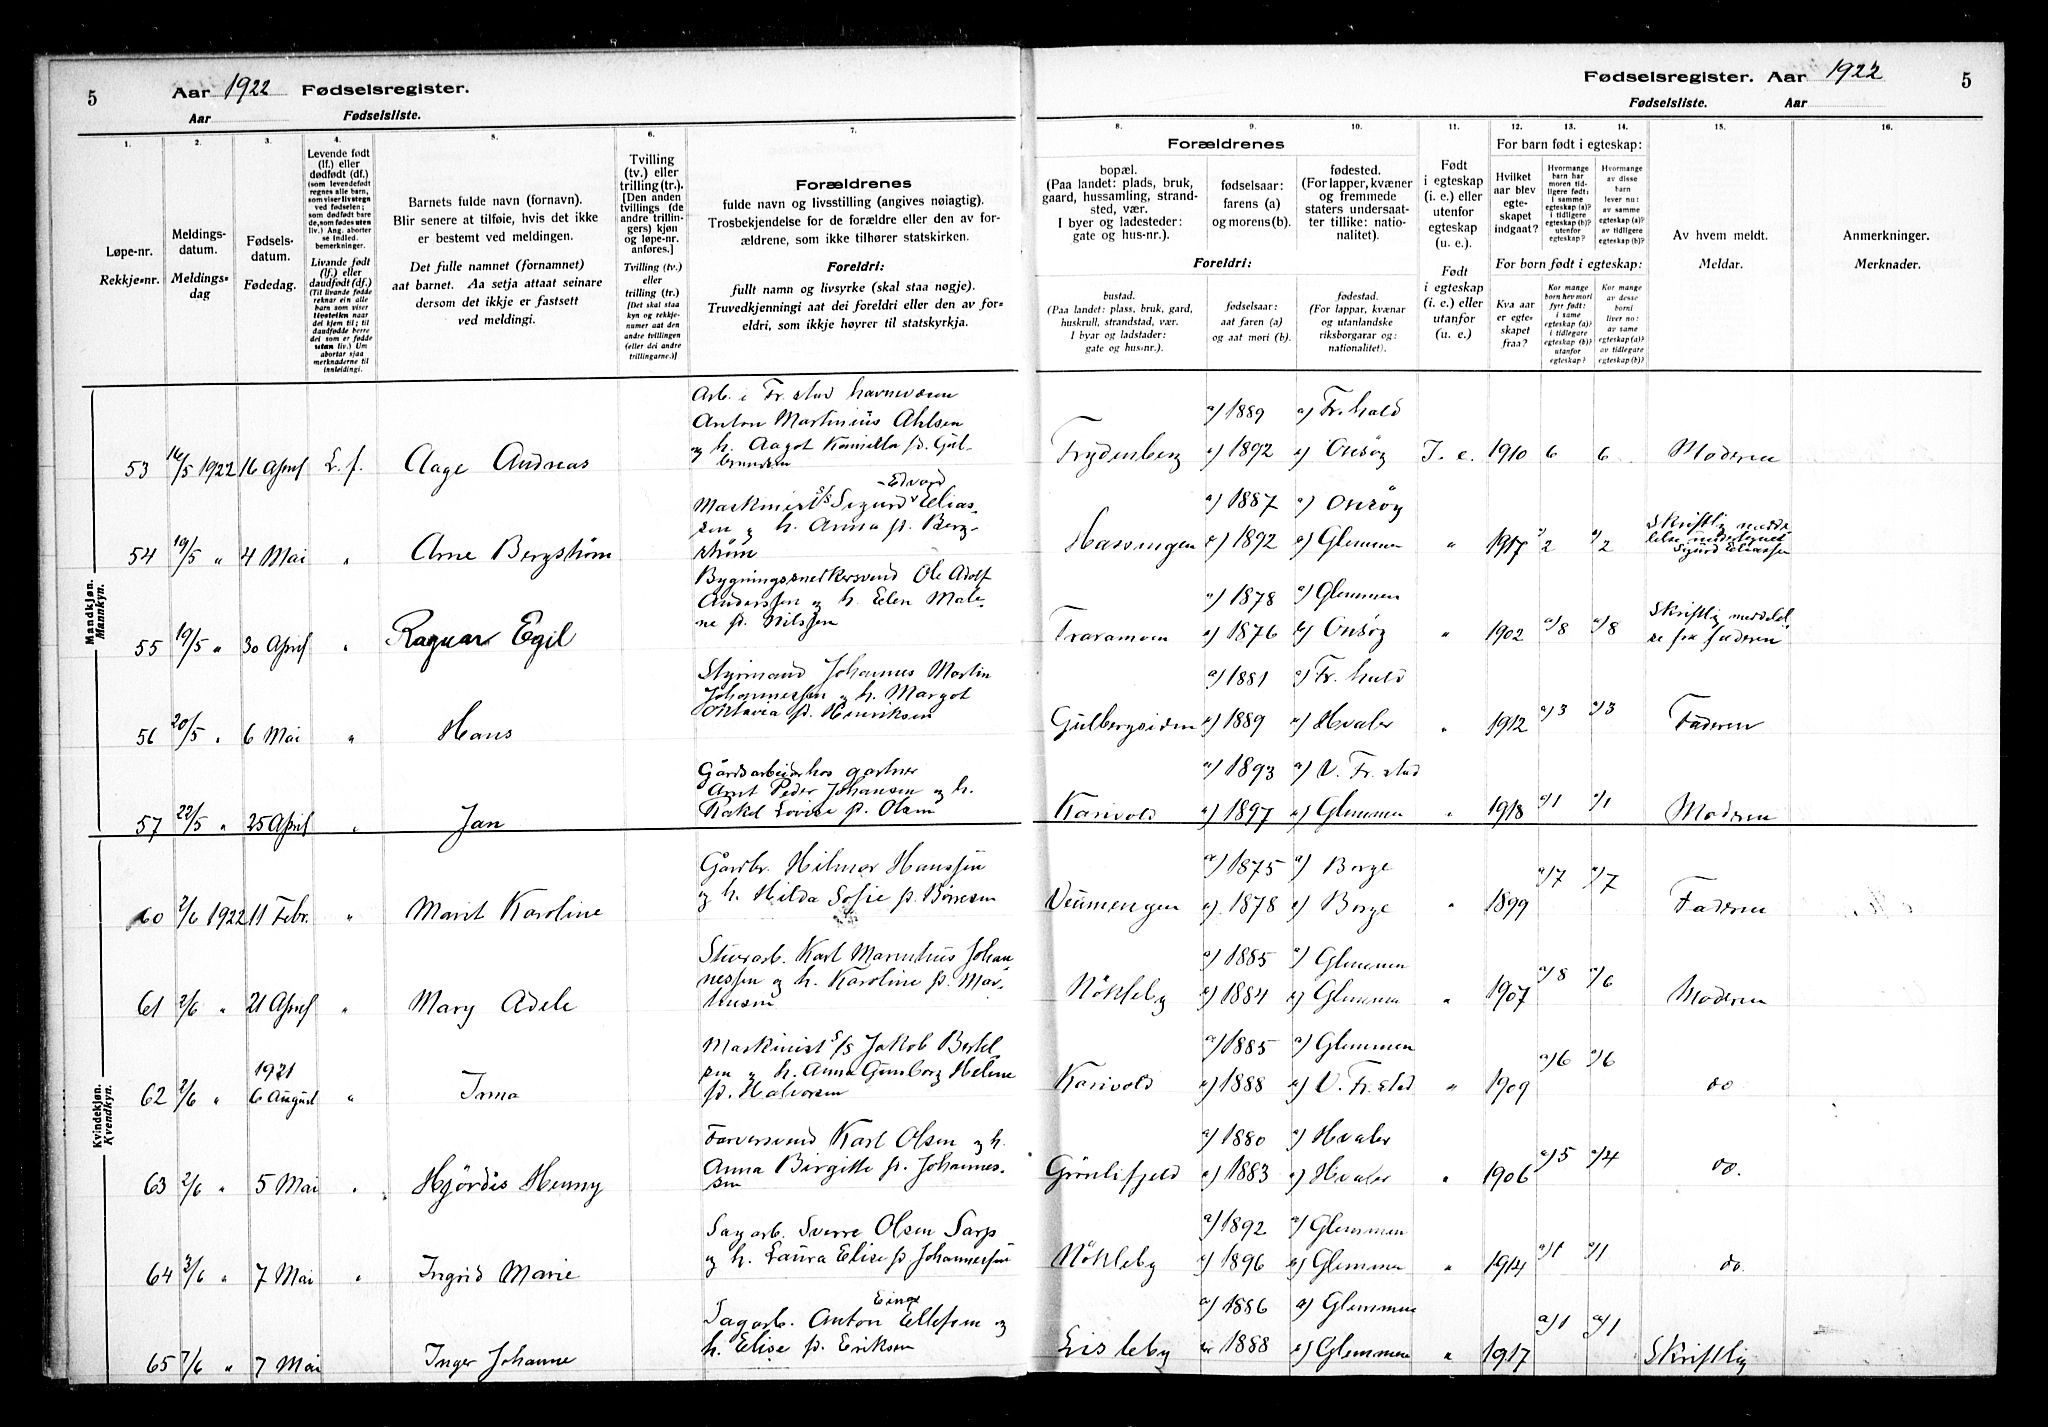 5
Aar 1922 Fødselsregister.
Aar Fødselsliste.
Fødselsregister. Aar 1922
5
Fødselsliste. Aar
1. 2. 3. 4. 5. 6. 7.
8. 9. 10. 11. 12. 13. 14. 15. 16.
Løpe-nr.
Rekkje-nr.
Meldings-
datum.
Meldings-
dag
Fødsels-
datum.
Fødedag.
Levende født
(lf.) eller
dødfødt (df.)
(som levendefødt
regnes alle barn,
som viser livstegn
ved fødselen;
som dødfødt bare
de, som fødes uten
liv.) Ang. aborter
se indled.
bemerkninger.
Livande født
(lf.) eller
daudfødt (df.)
(Til livande fødde
reknar ein alle
barn som viser
livsteikn naar
dei kjem til; til
daudfødde berre
dei som er fødde
utan liv.) Um
abortar sjaa
merknaderne til
innleidingi.
Barnets fulde navn (fornavn).
Blir senere at tilføie, hvis det ikke
er bestemt ved meldingen.
Det fulle namnet (fornamnet)
aat barnet. Aa setja attaat seinare
dersom det ikkje er fastsett
ved meldingi.
Tvilling
(tv.) eller
trilling (tr.).
[Den anden
tvillings (de
andre trillin-
gers) kjøn
og løpe-nr.
anføres.]
Tvilling (tv.)
eller
trilling (tr.)
[Det skal staa
kyn og rekkje-
numer aat den
andre tvillingen
(eller dei andre
trillingarne.)]
Forældrenes
fulde navn og livsstilling (angives nøiagtig).
Trosbekjendelse for de forældre eller den av for-
ældrene, som ikke tilhører statskirken.
Foreldri:
fullt namn og livsyrke (skal staa nøgje).
Truvedkjenningi aat dei foreldri eller den av for-
eldri, som ikkje høyrer til statskyrkja.
Forældrenes
bopæl.
(Paa landet: plads, bruk,
gaard, hussamling, strand-
sted, vær.
I byer og ladesteder:
gate og hus-nr.).
fødselsaar:
farens (a)
og morens (b).
fødested.
(For lapper, kvæner
og fremmede
staters undersaat-
ter tillike: natio-
nalitet).
Foreldri:
bustad.
(Paa landet: plass, bruk, gard,
huskrull, strandstad, vær.
I byar og ladstader:
gate og hus-nr.).
fødselsaar:
aat faren (a)
og aat mori (b).
fødestad.
(For lappar, kvænar
og utanlandske
riksborgarar og:
nationalitet).
Født
i egteskap
(i. e.) eller
utenfor
egteskap
(u. e.).
Født
i egteskap
(i. e.) eller
utanfor
(u. e.)
For barn født i egteskap:
Hvilket
aar blev
egte-
skapet
indgaat?
Hvormange
barn har
moren tid-
ligere født:
i samme
egteskap (a)?
i tidligere
egteskap (b)?
utenfor
egteskap?
Hvormange
av disse
barn
lever nu:
av samme
egteskap (a)?
av tidligere
egteskap (b)?
For born født i egteskap:
Kva aar
er egte-
skapet
fraa?
Kor mange
born hev mori
fyrr født:
i same
egteskap (a)?
i tidlegare
egteskap (b)?
utanfor
egteskap?
Kor mange
av desse
borni
liver no:
av same
egteskap (a)?
av tidlegare
egteskap (b)?
Av hvem meldt.
Meldar.
Anmerkninger.
Merknader.
Mandkjøn.
Mannkyn.
Arb. i Fr.stad havnevæsen
Anton Martinius Ahlsen
og h. Aagot Kamilla f. Gul-
brandsen
53 16/5 1922 16 April L. f. Aage Andreas
a) 1889 a) Fr.hald
Frydenberg b) 1892 b) Onsöy I. e. 1910 6 6 Moderen
Edvard
Maskinist s/s Sigurd Elias-
sen og h. Anna f. Berg-
ström
54 19/5 " 4 Mai " Arne Bergström
a) 1887 a) Onsöy
Hassingen b) 1892 b) Glemmen " 1917 a/2 a/2 Skriftlig medde
lelse undertegnet
Sigurd Eliassen
Bygningssnedkersvend Ole Adolf
Anderssen og h. Elen Male-
ne f. Nilssen
55 19/5 " 30 April " Ragnar Egil
a) 1878 a) Glemmen
Traramoen b) 1876 b) Onsöy " 1902 a/8 a/8 Skriftlig meddel
se fra faderen
Styrmand Johannes Martin
Johannessen og h. Margot
Oktavia f. Henriksen
56 20/5 " 6 Mai " Hans
a) 1881 a) Fr.hald
Gulbergsiden b) 1889 b) Hvaler " 1912 a/3 a/3 Faderen
Gårdsarbeider hos gartner
Arnt Peder Johansen og h.
Rakel Lovise f. Olsen
57 22/5 " 25 April " Jan
a) 1893 a) V. Fr.stad
Karivold b) 1897 b) Glemmen " 1918 a/1 a/1 Moderen
Kvindekjøn.
Kvendkyn.
Gårdbr. Hilmar Hanssen
og h. Hilda Sofie f. Börresen
60 2/6 1922 11 Febr. " Marit Karoline
a) 1875 a) Borge
Veumengen b) 1878 b) Borge " 1899 a/7 a/7 Faderen
Stuerarb. Karl Marinius Johan
nessen og h. Karoline f. Mar-
tinsen
61 2/6 " 21 April " Mary Adele
a) 1885 a) Glemmen
Nökleby b) 1884 b) Glemmen " 1907 a/8 a/6 Moderen
Maskinist s/s Jakob Bertel
sen og h. Anna Gunborg Helene
f. Halvorsen
1921
62 2/6 " 6 August " Irma
a) 1885 a) Glemmen
Karivold b) 1888 b) V. Fr.stad " 1909 a/6 a/6 do
Farversvend Karl Olsen og h.
Anna Birgitte f. Johannes-
sen
63 2/6 " 5 Mai " Hjördis Henny
a) 1880 a) Hvaler
Grönlifjeld b) 1883 b) Hvaler " 1906 a/5 a/4 do.
Sagarb. Sverre Olsen Sarp
og h. Laura Elise f. Johannessen
64 3/6 " 7 Mai " Ingrid Marie
a) 1892 a) Glemmen
Nökleby b) 1896 b) Glemmen " 1914 a/1 a/1 do.
Einar
Sagarb. Anton Ellefsen og
h. Elise f. Eriksen
65 7/6 " 7 Mai Inger Johanne
a) 1886 a) Glemmen
Lisleby b) 1888 b) Glemmen " 1917 a/1 a/1 Skriftlig